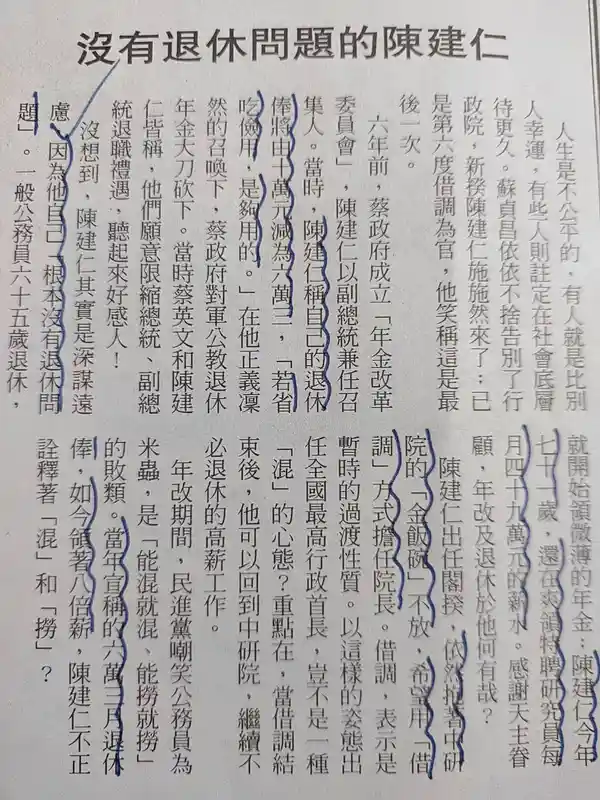 沒有退休問題的陳建仁
人生是不公平的，有人就是比別
人幸運，有些人則註定在社會底層
待更久。蘇貞昌依依不捨告別了行
政院，新揆陳建仁施施然來了；已
是第六度借調為官，他笑稱這是最
後一次。
六年前，蔡政府成立「年金改革
委員會」，陳建仁以副總統兼任召
集人。當時，陳建仁稱自己的退休
俸將由十萬元減為六萬三，「若省
吃儉用，是夠用的。」在他正義凜
然的召喚下，蔡政府對軍公教退休
年金大刀砍下。當時蔡英文和陳建
仁皆稱，他們願意限縮總統、副總
統退職禮遇，聽起來好感人！
沒想到，陳建仁其實是深謀遠
慮，因為他自己「根本沒有退休問
題」。一般公務員六十五歲退休，
就開始領微薄的年金；陳建仁今年
七十一歲，還在爽領特聘研究員每
月四十九萬元的薪水。感謝天主眷
顧，年改及退休於他何有哉？
陳建仁出任閣揆，依然抱著中研
院的「金飯碗」不放，希望用「借
調」方式擔任院長。借調，表示是
暫時的過渡性質。以這樣的姿態出
任全國最高行政首長，豈不是一種
「混」的心態？重點在，當借調結
束後，他可以回到中研院，繼續不
必退休的高薪工作。
年改期間，民進黨嘲笑公務員為
米蟲，是「能混就混、能撈就撈」
的敗類。當年宣稱的六萬三月退休
俸，如今領著八倍薪，陳建仁不正
詮釋著「混」和「撈」？